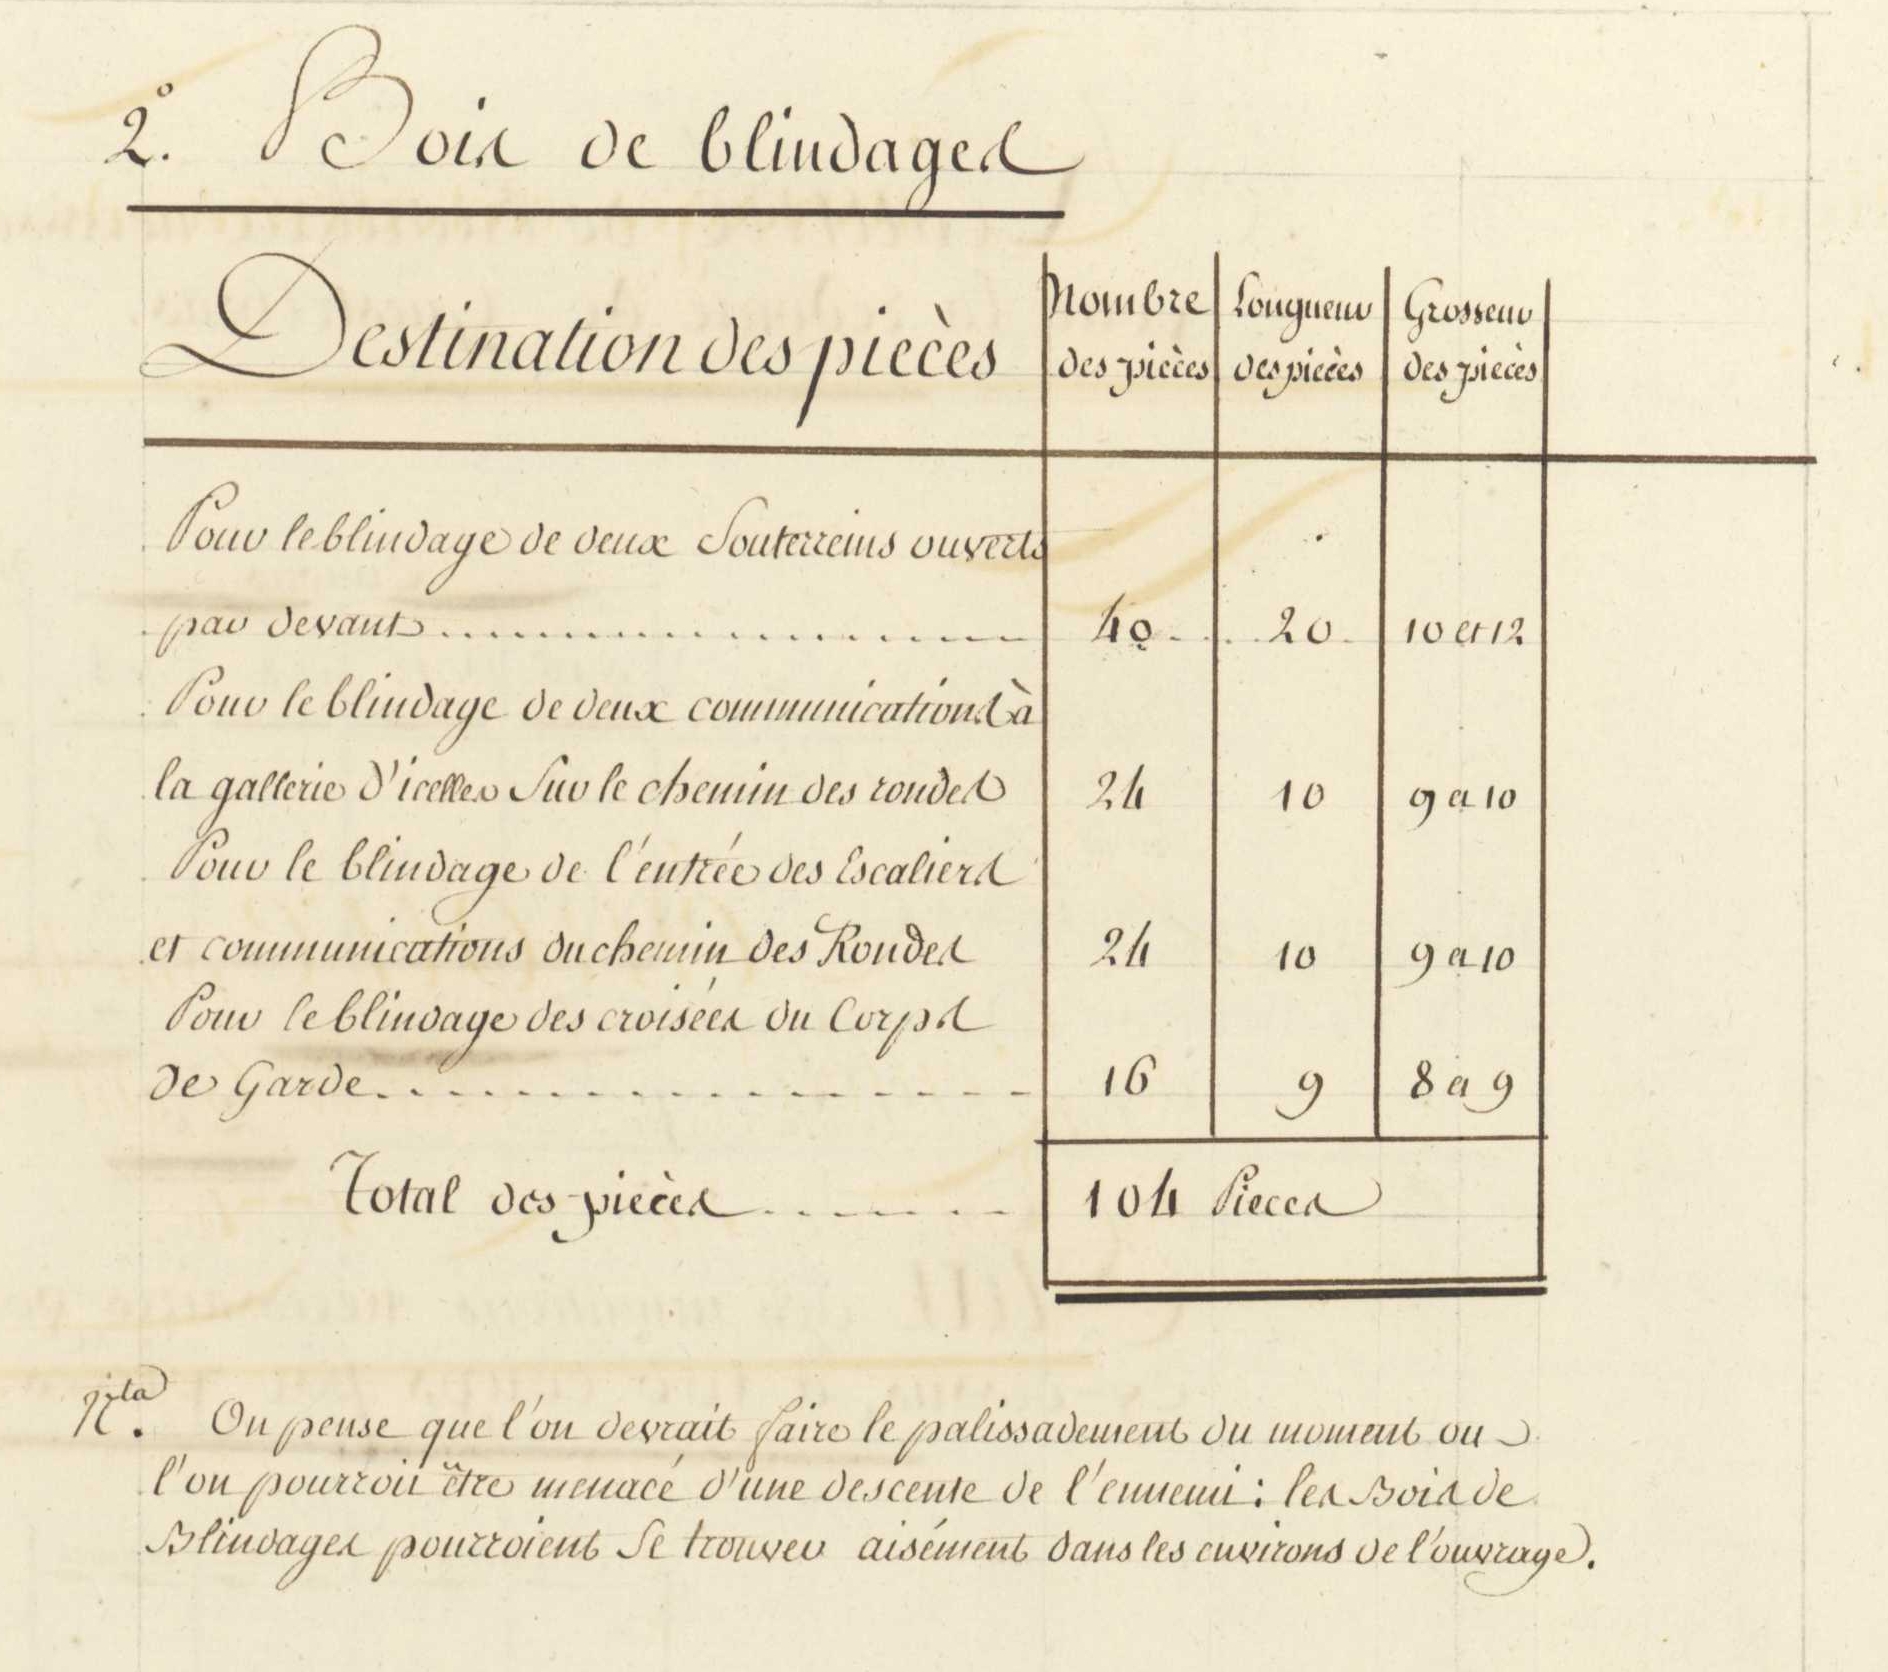 2.° Bois de blindages
Destination des piecès | Nombre des pièces | Longueur des pièces | Grosseur des pièces
Pour le blindage de deux Souterreins ouverts
par devant .................... 40 .. 20 . 10 et 12
Pour le blindage de deux communications à
la gallerie d'icelles Sur le chemin des rondes 24 10 9 a 10
Pour le blindage de l'entrée des Escaliers
et communications du chemin des Rondes 24 10 9 a 10
Pour le blindage des croisées du Corps
de Garde .................... 16 9 8 a 9
Total des pièces ....... 104 Pieces
N.ta On pense que l'on devrait faire le palissadement du moment ou
l'on pourroit être menacé d'une descente de l'ennemi : les Bois de
Blindages pourroient Se trouver aisément dans les environs de l'ouvrage.